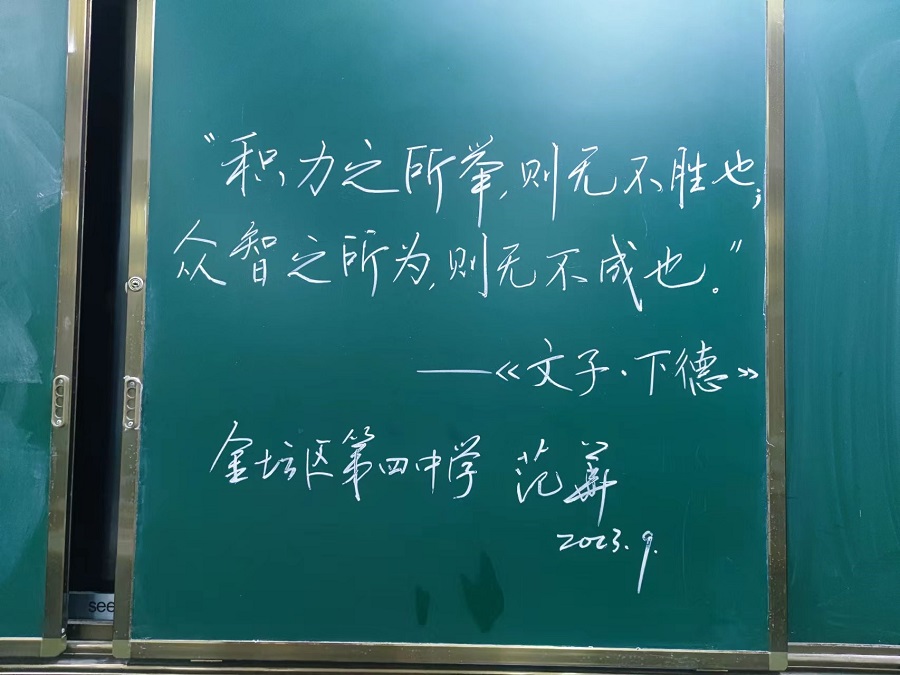 “积力之所举,则无不胜也;
众智之所为,则无不成也。”
——《文子·下德》
金坛区第四中学 范华
2023.9.
see